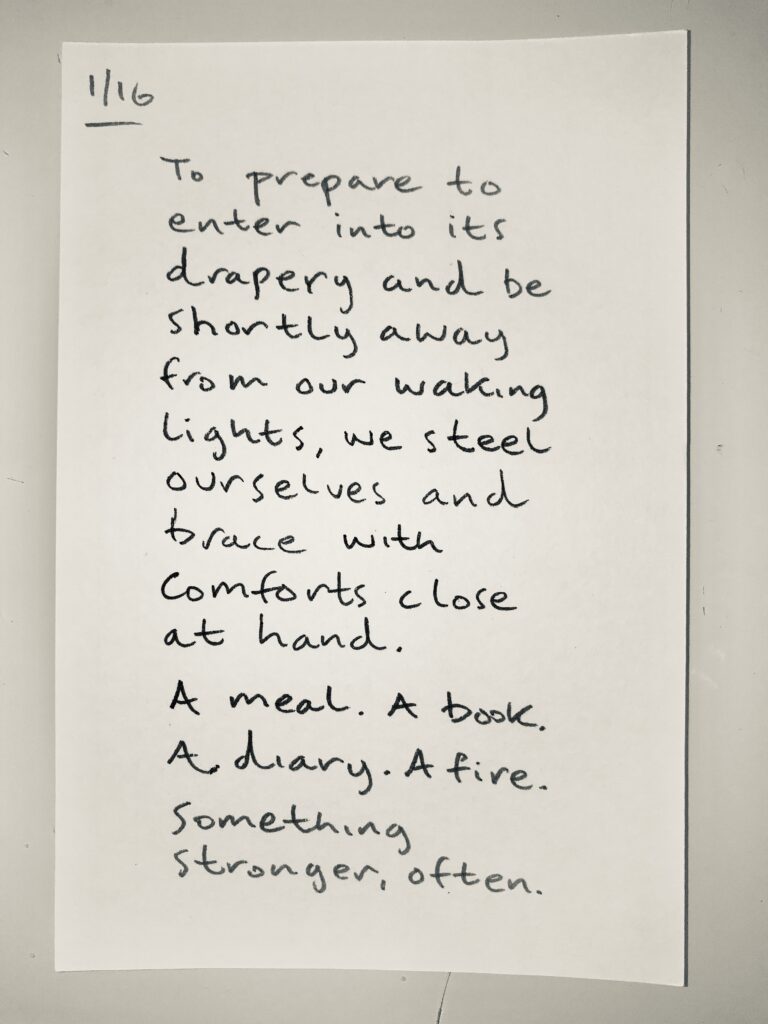 1/16
To prepare to
enter into its
drapery and be
shortly away
from our waking
lights, we steel
ourselves and
brace with
comforts close
at hand.
A meal. A book.
A diary. A fire.
Something
stronger, often.